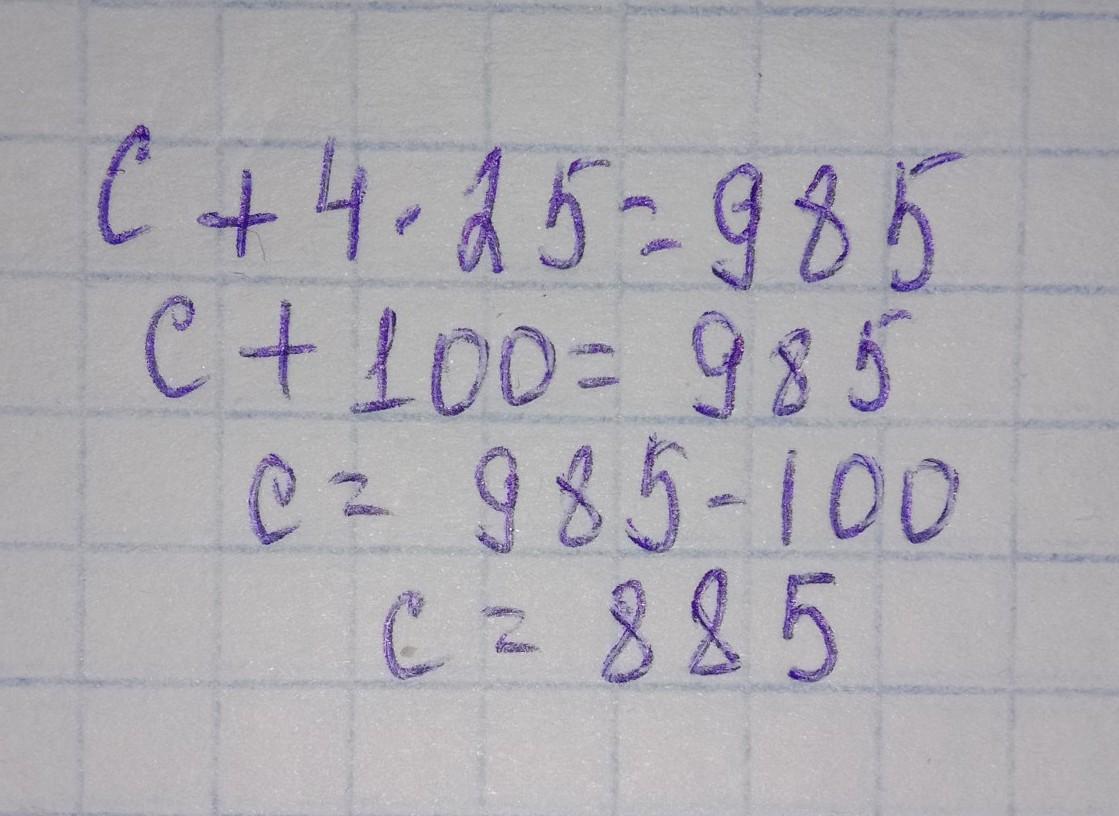 c + 4 · 25 = 985
c + 100 = 985
c = 985 - 100
c = 885